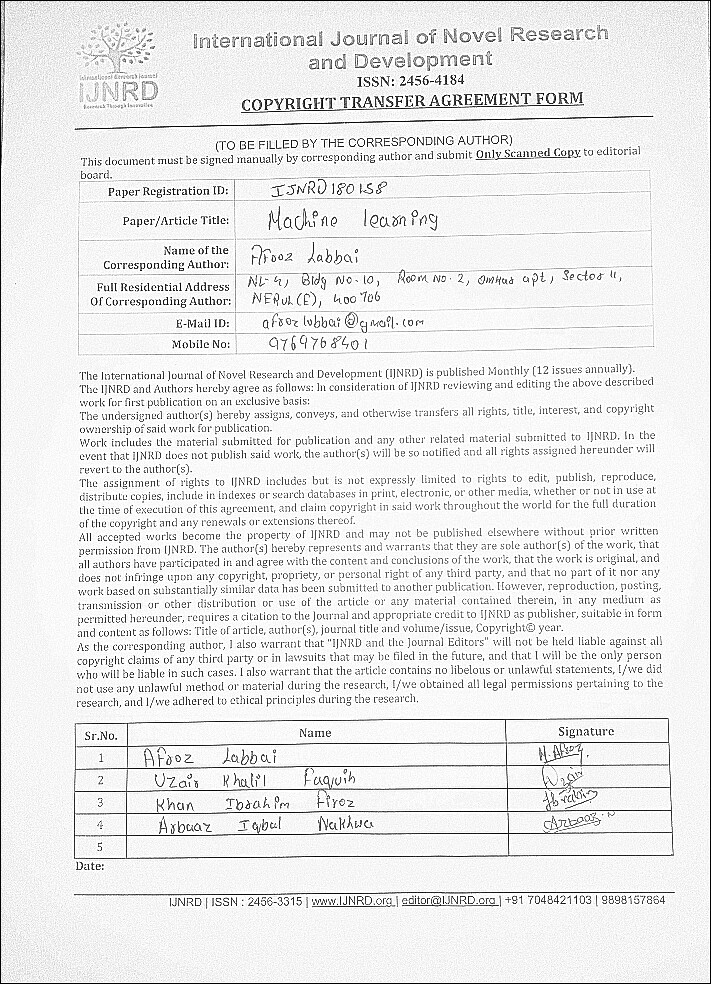 International Journal of Novel Research
and Development
International Research Journal
IJNRD
Research Through Innovation
ISSN: 2456-4184
COPYRIGHT TRANSFER AGREEMENT FORM
(TO BE FILLED BY THE CORRESPONDING AUTHOR)
This document must be signed manually by corresponding author and submit Only Scanned Copy to editorial
board.
Paper Registration ID: IJNRD180158
Paper/Article Title: Machine learning
Name of the
Corresponding Author: Afroz Labbai
Full Residential Address
Of Corresponding Author: NL-4, Bldg No-10, Room No-2, Omkar apt, Sector 11,
NERUL(E), 400706
E-Mail ID: afrozlabbai@gmail.com
Mobile No: 9769768401
The International Journal of Novel Research and Development (IJNRD) is published Monthly (12 issues annually).
The IJNRD and Authors hereby agree as follows: In consideration of IJNRD reviewing and editing the above described
work for first publication on an exclusive basis:
The undersigned author(s) hereby assigns, conveys, and otherwise transfers all rights, title, interest, and copyright
ownership of said work for publication.
Work includes the material submitted for publication and any other related material submitted to IJNRD. In the
event that IJNRD does not publish said work, the author(s) will be so notified and all rights assigned hereunder will
revert to the author(s).
The assignment of rights to IJNRD includes but is not expressly limited to rights to edit, publish, reproduce,
distribute copies, include in indexes or search databases in print, electronic, or other media, whether or not in use at
the time of execution of this agreement, and claim copyright in said work throughout the world for the full duration
of the copyright and any renewals or extensions thereof.
All accepted works become the property of IJNRD and may not be published elsewhere without prior written
permission from IJNRD. The author(s) hereby represents and warrants that they are sole author(s) of the work, that
all authors have participated in and agree with the content and conclusions of the work, that the work is original, and
does not infringe upon any copyright, propriety, or personal right of any third party, and that no part of it nor any
work based on substantially similar data has been submitted to another publication. However, reproduction, posting,
transmission or other distribution or use of the article or any material contained therein, in any medium as
permitted hereunder, requires a citation to the Journal and appropriate credit to IJNRD as publisher, suitable in form
and content as follows: Title of article, author(s), journal title and volume/issue, Copyright© year.
As the corresponding author, I also warrant that "IJNRD and the Journal Editors" will not be held liable against all
copyright claims of any third party or in lawsuits that may be filed in the future, and that I will be the only person
who will be liable in such cases. I also warrant that the article contains no libelous or unlawful statements, I/we did
not use any unlawful method or material during the research, I/we obtained all legal permissions pertaining to the
research, and I/we adhered to ethical principles during the research.
Sr.No. Name Signature
1 Afroz Labbai N. Afroz.
2 Uzair Khalil Faquih Uzair
3 Khan Ibrahim Firoz Ibrahim
4 Arbaaz Iqbal Nakhwa Arbaaz.N
5
Date:
IJNRD | ISSN : 2456-3315 | www.IJNRD.org | editor@IJNRD.org | +91 7048421103 | 9898157864